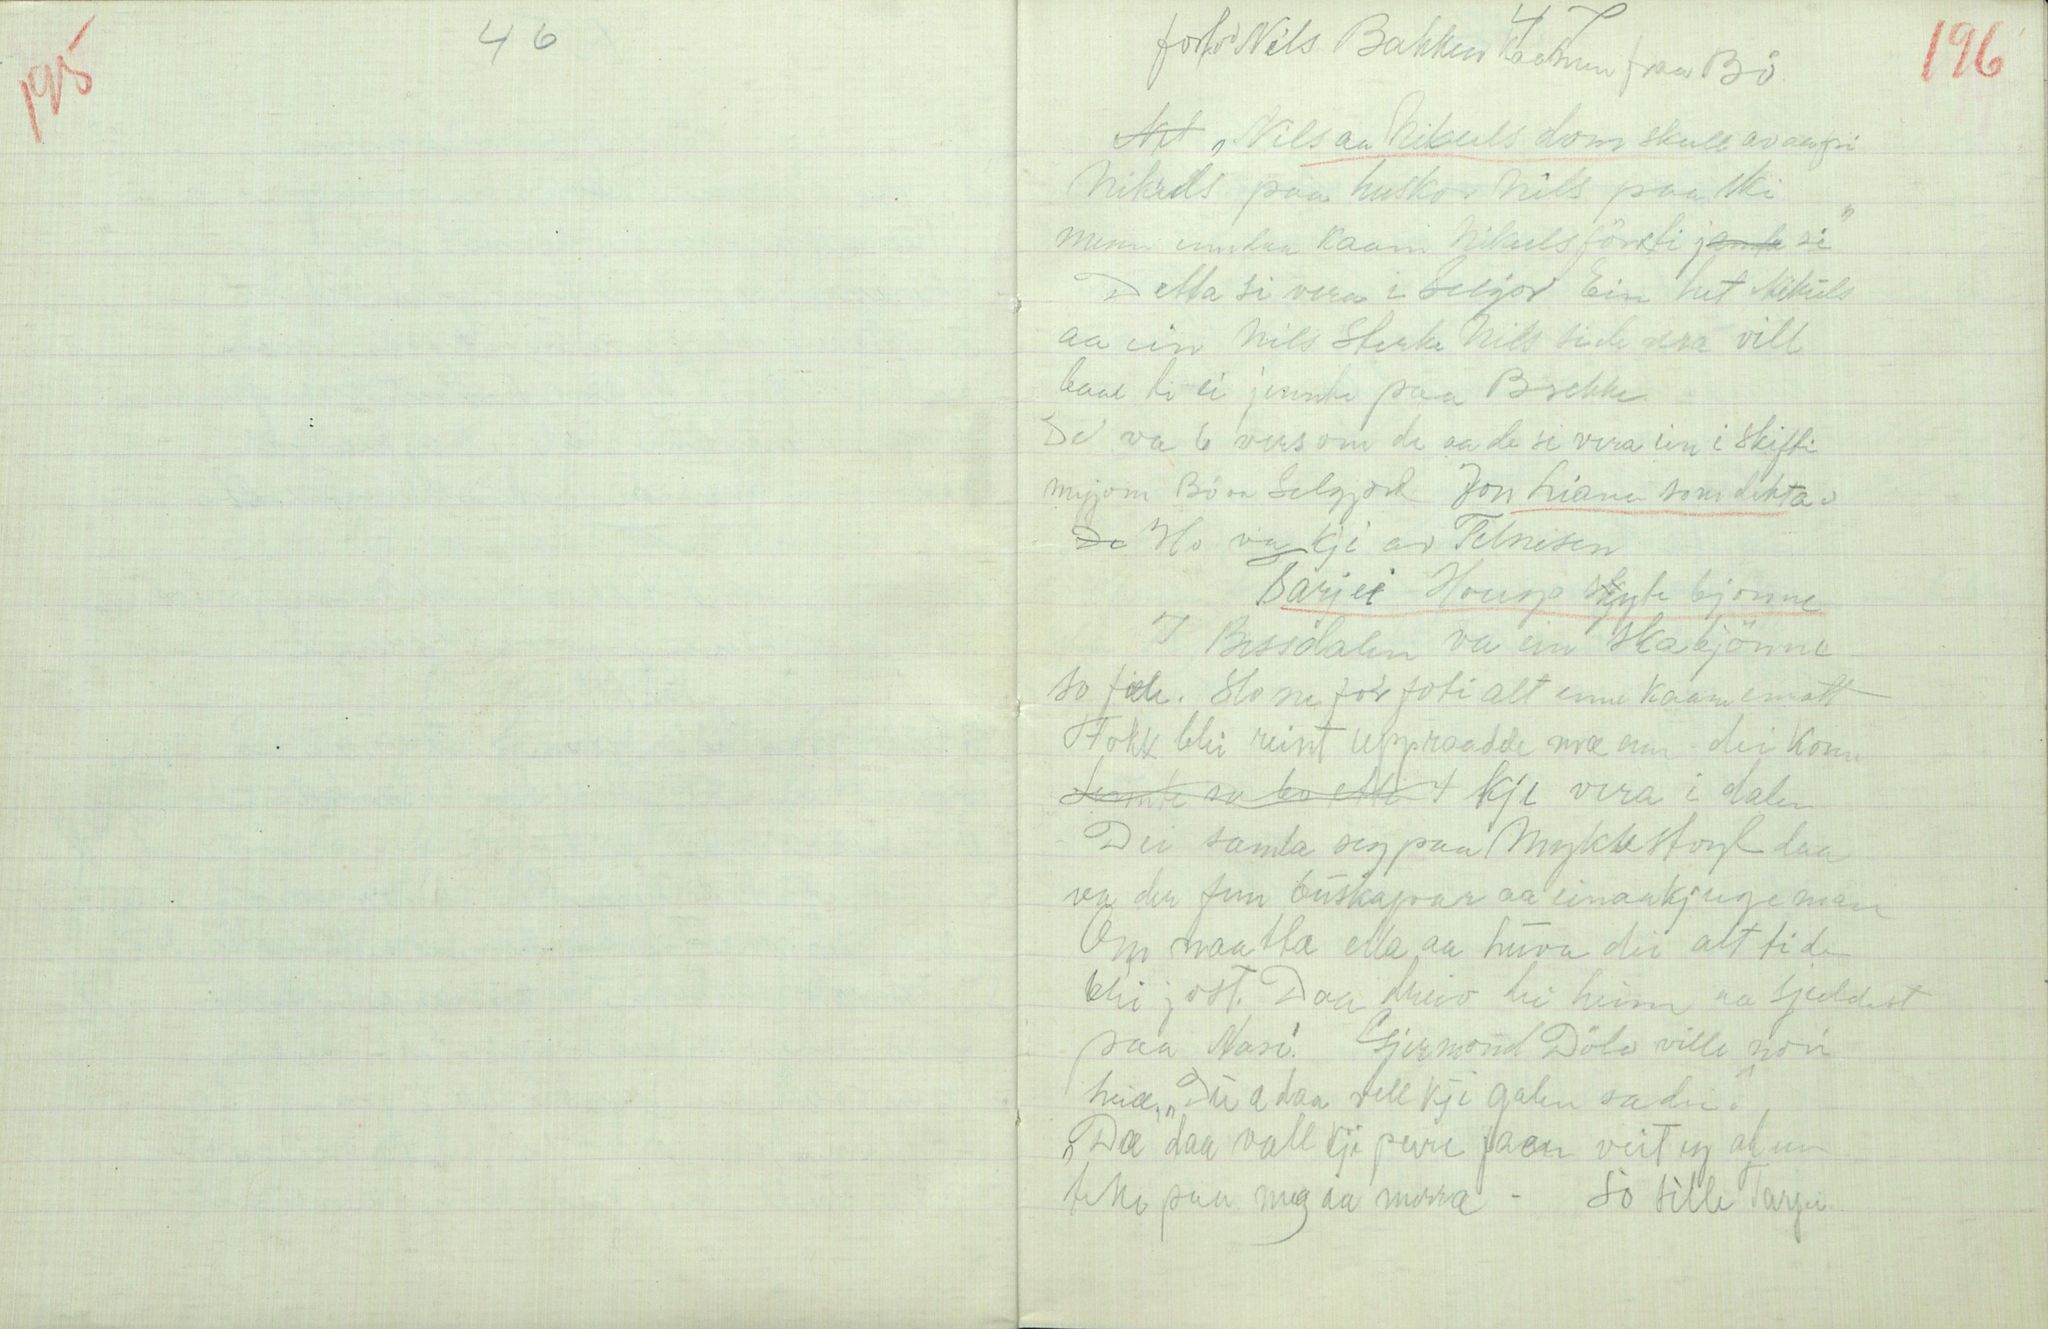 195
46
47
196
forto Nils Bakken kommen fraa Bö
Nils aa Nikuls dom skulle avaafri
Nikuls paa husko Nils paa ski
menn enndaa kaam Nikuls försti jente si"
Detta si vera i Selgjor Ein het Nikuls
aa ein Nils Sterke Nils vill
baae ti ei jennte paa Brekke
De va 6 vers om de aa de si vera ein i Skifti
myjom Bö aa Selgjord Jon Liane som dikta
De Ho va kji av Telnesen
Tarjei Housp skyte bjonne
I Bessdalen va ein skabjönne
so fæle. Slo ne for foti alt enn kaam e matt
Fokk blei reint uppraadde mæ enn dei konn
kje vera i dalen
Dei samla seg paa Myklestoyl daa
va der fem buskapar aa einaakjuge mann
Om naatta ella aa huva dei alt ti de
blei jost. Daa dreiv dei heim aa sjeldest
paa Nasi. Gjermond Dölo ville nori
heiæ, "Du a daa vell kji galen sa dei"
"Dæ daa vall kji pure faaen veit eg at enn
teke paa meg aa merra - So sille Tarjei